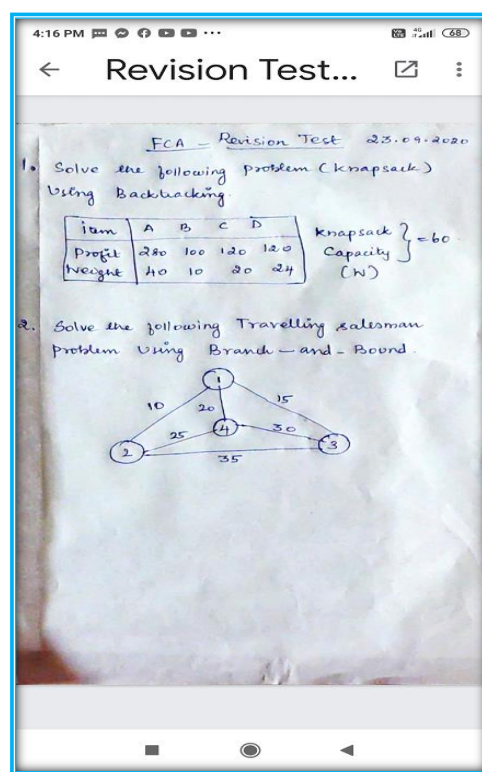 4:16 PM ... 4G 68
Revision Test...
FCA - Revision Test 23.09.2020
1. Solve the following problem (Knapsack)
Using Backtracking.
item A B C D
Profit 280 100 120 120
Weight 40 10 20 24
Knapsack
Capacity
(W)
= 60
2. Solve the following Travelling salesman
problem Using Branch-and-Bound.
1
10 20 15
25 4 30
2 3
35